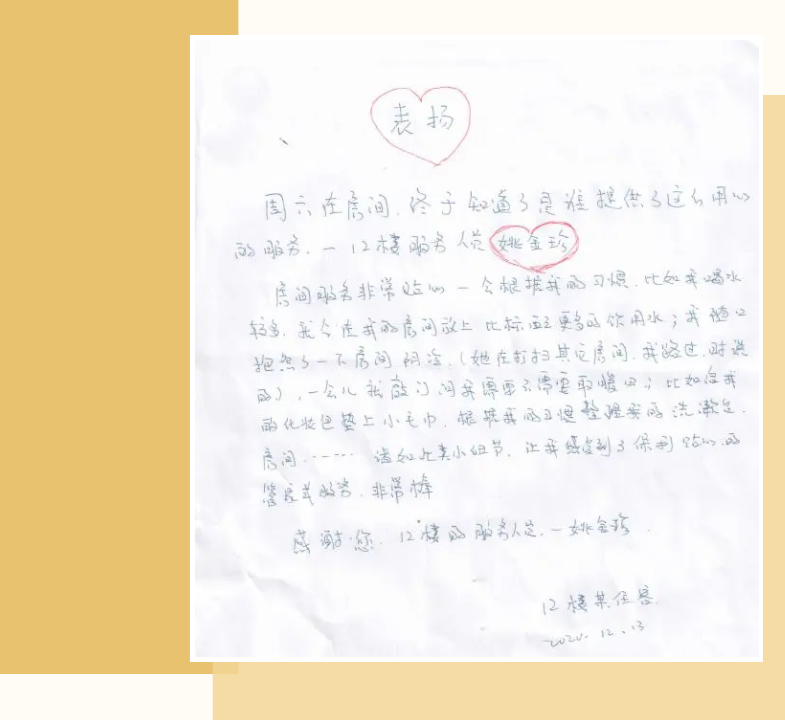 表扬
周六在房间,终于知道了是谁提供了这么用心
的服务,一12楼服务人员 姚金珍
房间服务非常贴心一会根据我的习惯,比如我喝水
较多,就会在我的房间放上比标配更多的饮用水;我随口
抱怨了一下房间阴冷,(她在打扫其它房间,我路过时说
的),一会儿就敲门问我需要不需要取暖器;比如给我
的化妆包垫上小毛巾,根据我的习惯整理我的洗漱台、
房间……诸如此类小细节,让我感受到了保利贴心的
管家式服务,非常棒
感谢您,12楼的服务人员,一姚金珍.
12楼某住客
2020.12.13